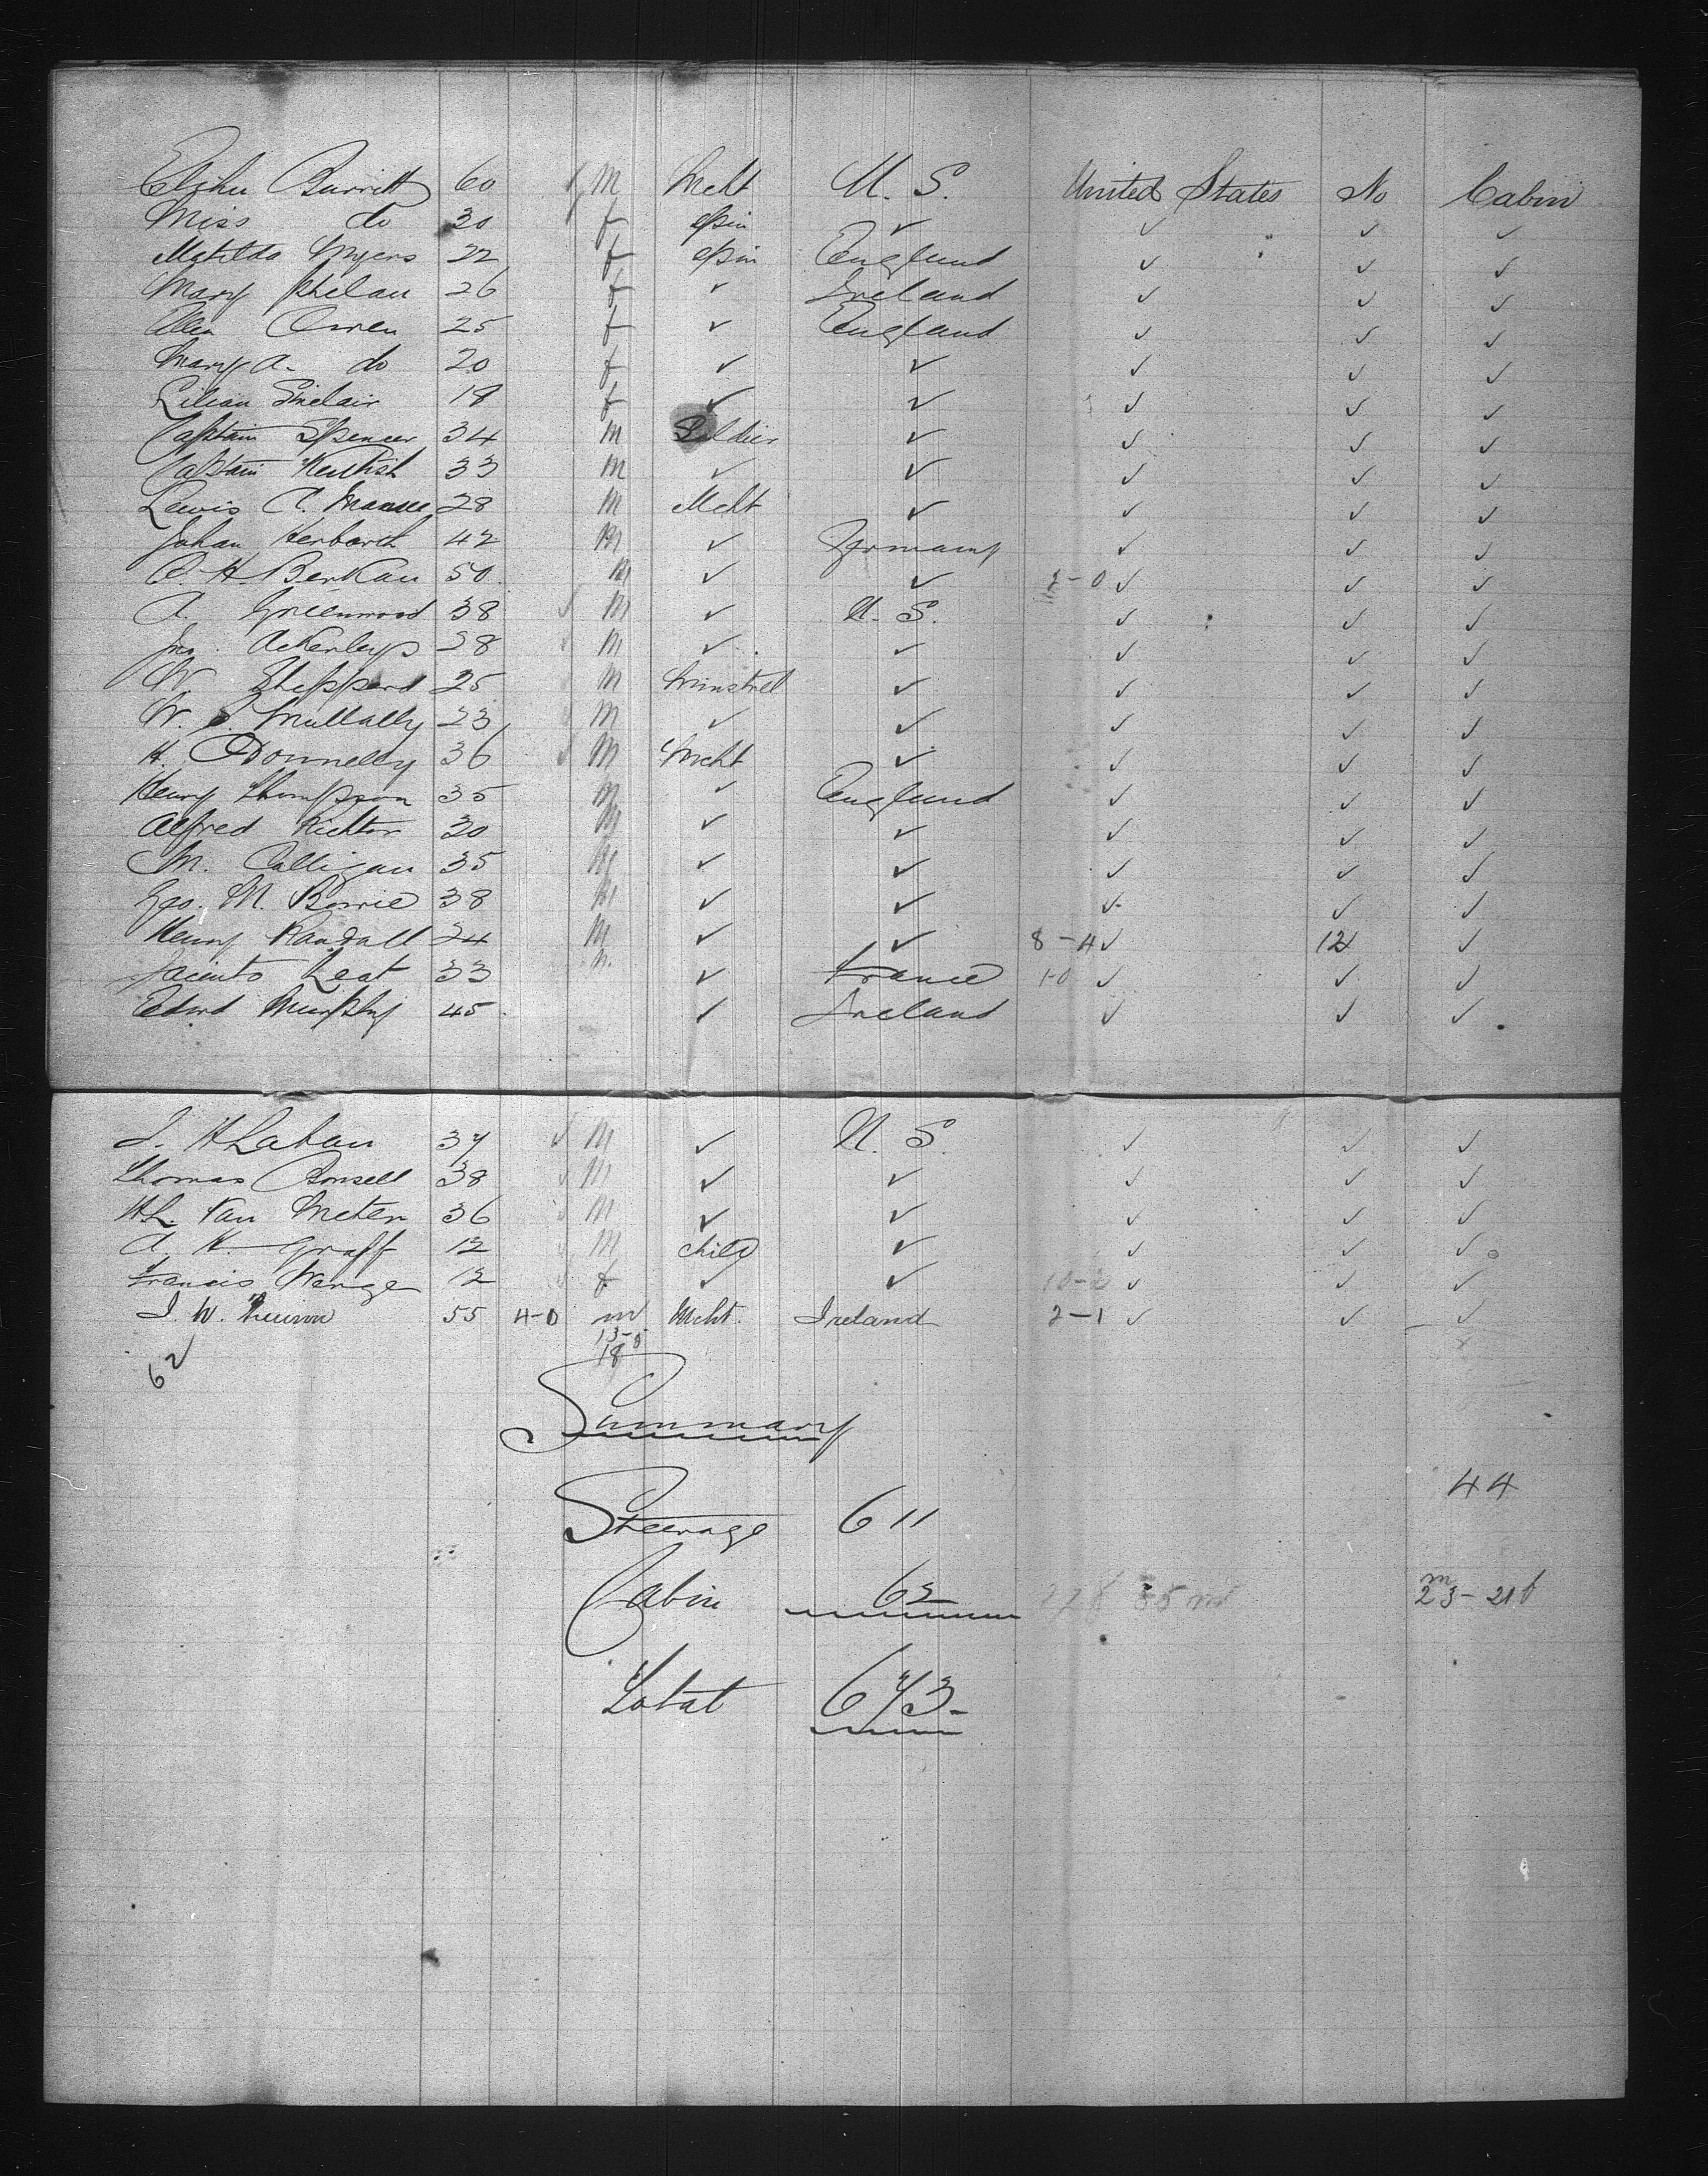 Elihu Burritt 60 M Mcht U. S. United States No Cabin
Miss do 30 f Spin ✓ ✓ ✓ ✓
Matilda Myers 22 f Spin England ✓ ✓ ✓
Mary Phelan 26 f ✓ Ireland ✓ ✓ ✓
Owen 25 f ✓ England ✓ ✓ ✓
Mary A. do 20 f ✓ ✓ ✓ ✓ ✓
Lilian Sinclair f ✓ ✓ ✓ ✓ ✓
Captain Spencer 34 M Soldier ✓ ✓ ✓ ✓
Captain Kentish 33 M ✓ ✓ ✓ ✓ ✓
Lewis C. 28 M Mcht ✓ ✓ ✓ ✓
Johan Herbarth 42 M ✓ Germany ✓ ✓ ✓
C. H. Berkau 50 M ✓ ✓ 2-0 ✓ ✓ ✓
A. Greenwood 38 ✓ M ✓ U. S. ✓ ✓ ✓
Jno. Ackerleys 28 ✓ M ✓ ✓ ✓ ✓ ✓
W Sheppard 25 M Minstrel ✓ ✓ ✓ ✓
W. S. Mullally 23 M ✓ ✓ ✓ ✓ ✓
H. ODonnelly 36 ✓ M Mcht ✓ ✓ ✓ ✓
Henry Thompson 35 M ✓ England ✓ ✓ ✓
Alfred Richter 30 M ✓ ✓ ✓ ✓ ✓
M. Calligan 35 M ✓ ✓ ✓ ✓ ✓
Geo. M. Bowie 38 M ✓ ✓ ✓ ✓ ✓
Henry Randall 24 M ✓ ✓ 8-4 ✓ 12 ✓
Jacinto Leat 33 M. ✓ France 1-0 ✓ ✓ ✓
Edwd Murphy 45 ✓ Ireland ✓ ✓ ✓
J. H Lahau 37 ✓ M ✓ U. S. ✓ ✓ ✓
Thomas Bonsell 38 ✓ M ✓ ✓ ✓ ✓ ✓
H L. Van Meter 36 M ✓ ✓ ✓ ✓ ✓
A. H. Graff 12 M child ✓ ✓ ✓ ✓
Francis Wenge 12 ✓ f ✓ ✓ 10-2 ✓ ✓ ✓
J. W. 55 4-0 m Mcht. Ireland 2-1 ✓ ✓ ✓
13-5
18
62
Summary
44
Steerage 611
Cabin 62 27 f 35 m m 23-21 f
Total 673